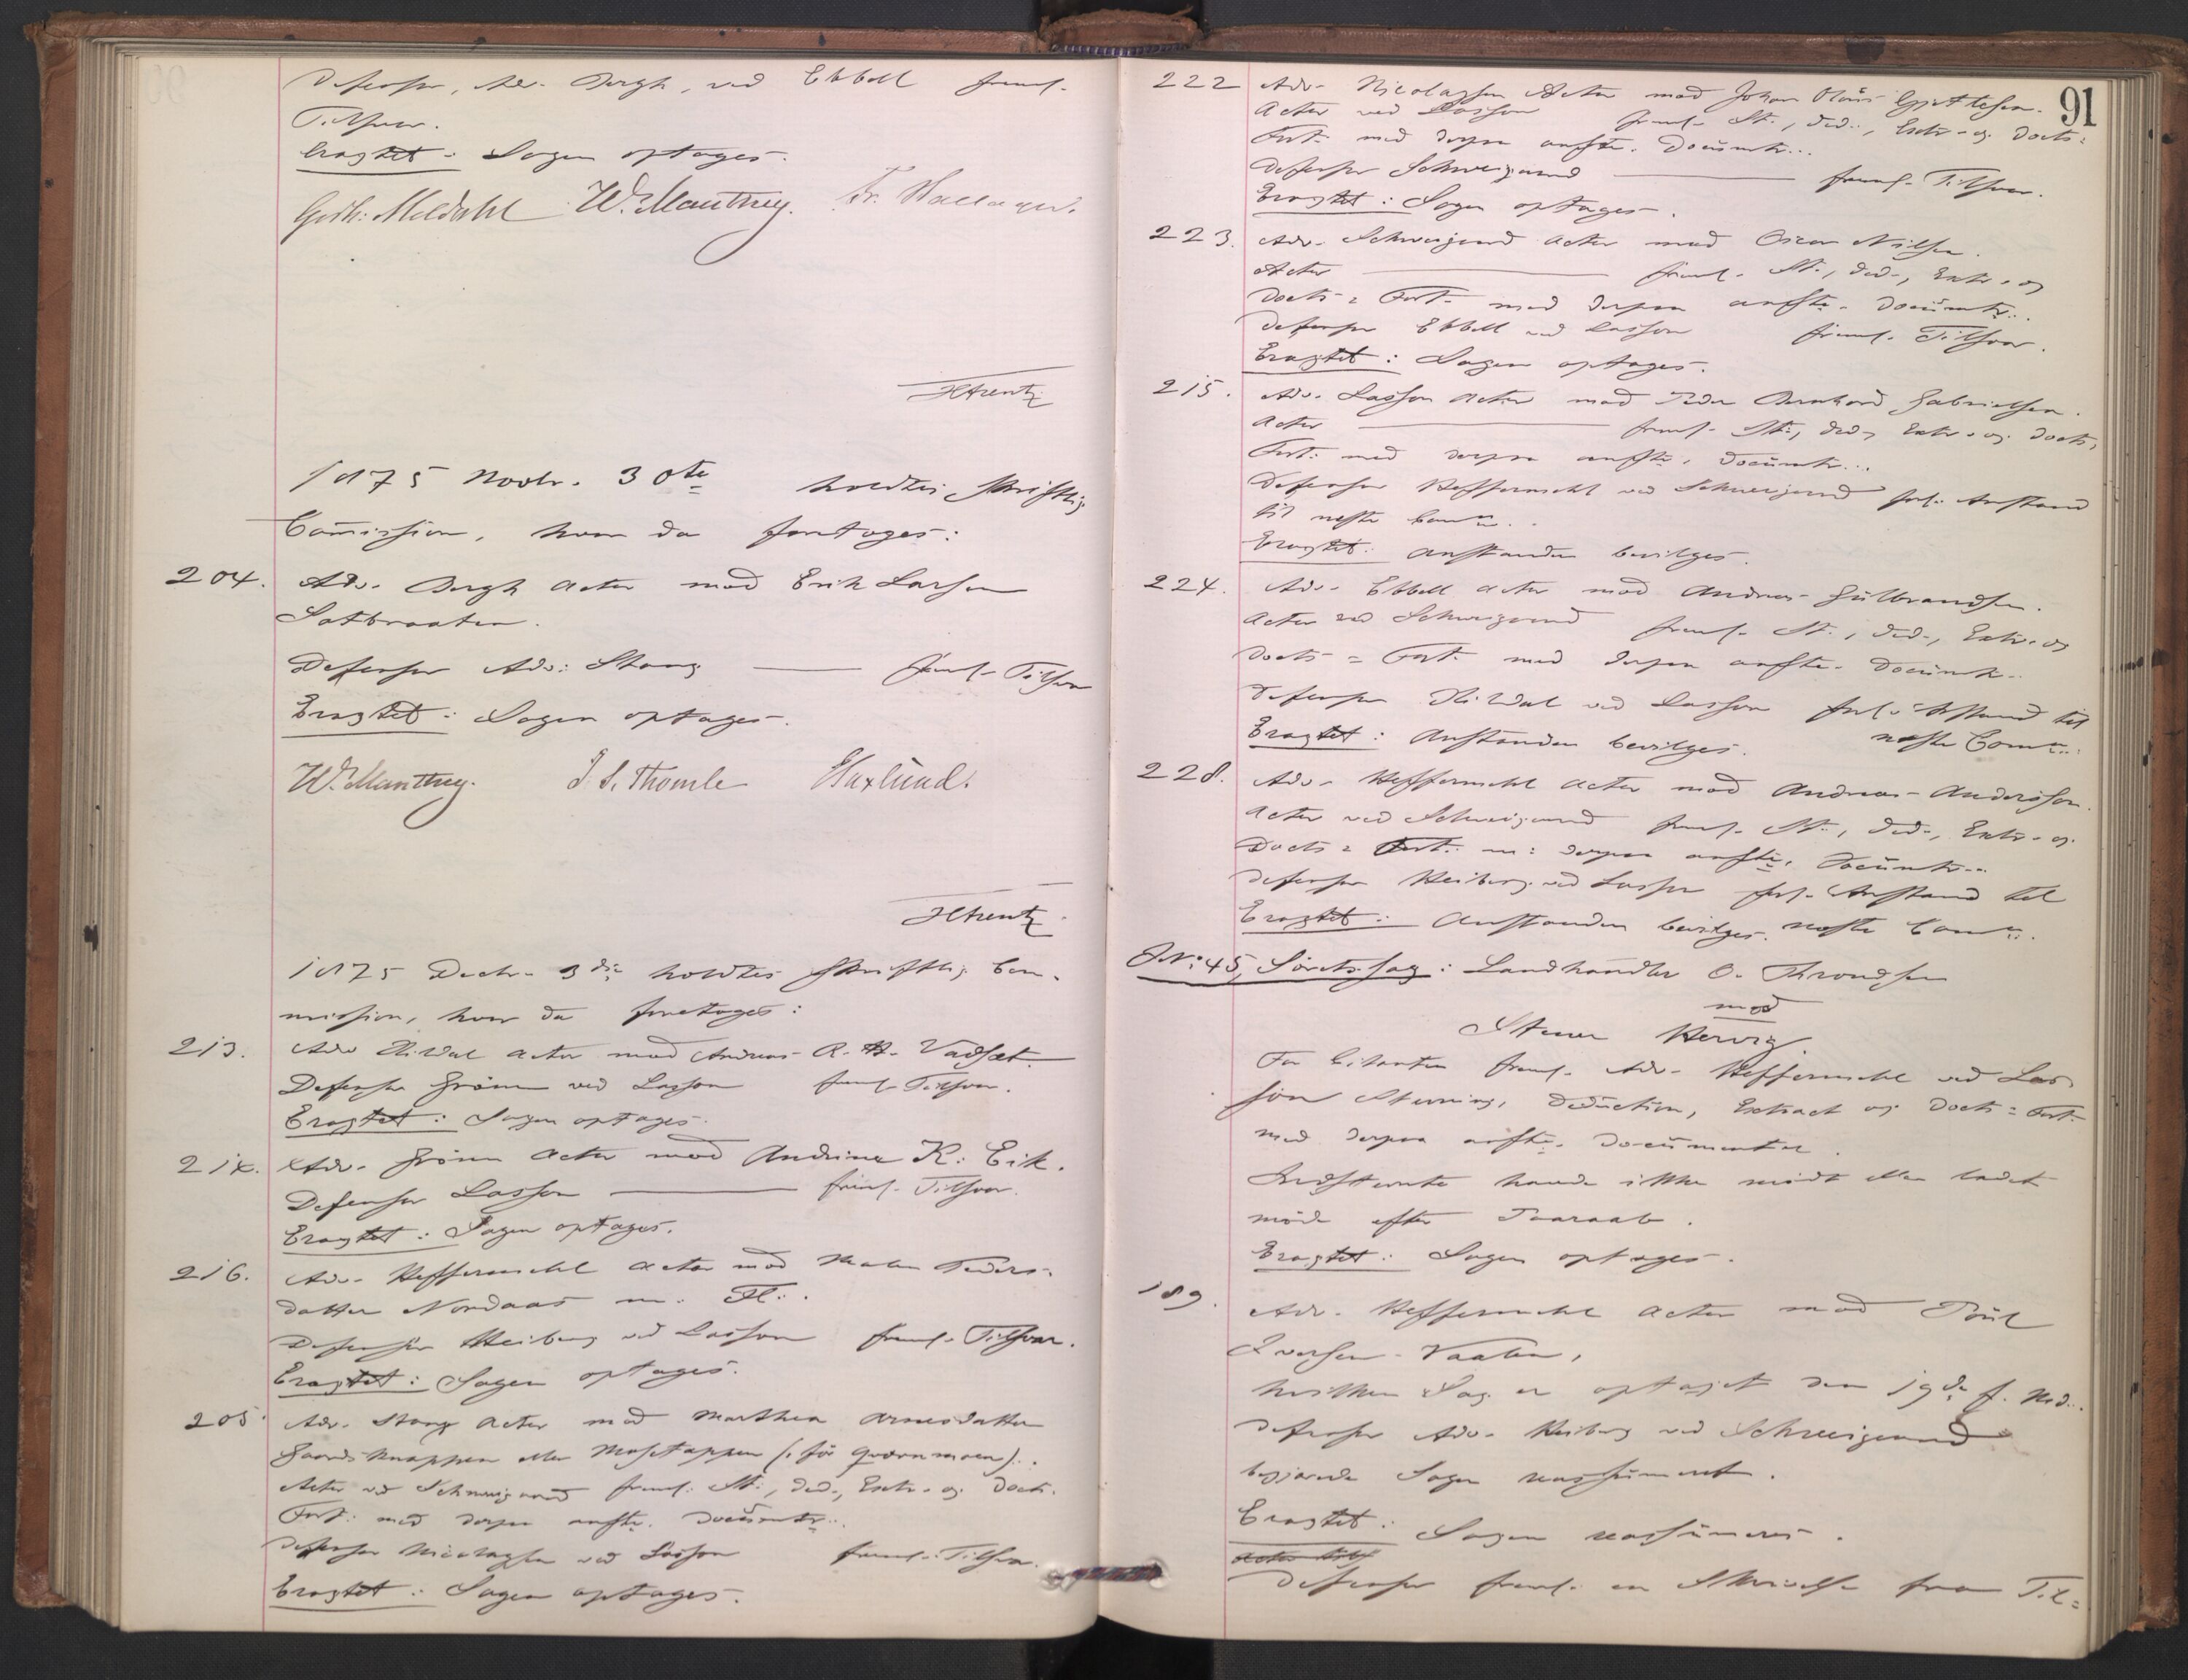 Defensor, Adv. Bergh, ved Ebbell freml.
Tilsvar.
Eragtet: Sagen optages.
Goth: Meldahl W. Manthey. Fr. Hallager.
HArentz
1875 Novbr. 30te holdtes skriftlig
Commission, hvor da foretoges:
204. Adv. Bergh Actor mod Erik Larsen
Satbraaten.
Defensor Adv: Stang — freml. Tilsvar
Eragtet: Sagen optages.
W. Manthey. J. S. Thomle Haxlund.
HArentz
1875 Decbr. 3die holdtes skriftlig Com-
mission, hvor da foretoges:
213. Adv Hirdal Actor mod Andreas A. H. Vadset
Defensor Grönn ved Lasson freml. Tilsvar.
Eragtet: Sagen optages.
214. Adv. Grönn Actor mod Andrine K: Eik.
Defensor Lasson — freml. Tilsvar.
Eragtet: Sagen optages.
216. Adv. Heffermehl Actor mod Malen Peders-
datter Nordaas m. Fl:.
Defensor Heiberg ved Lasson freml. Tilsvar.
Eragtet: Sagen optages.
205. Adv. Stang Actor mod Marthea Arnesdatter
Gaardsknappen eller Mosetappen (: før Qværnmoen).
Actor ved Schweigaard freml. St:, Ded., Extr. og Docts.
Fort: med derpaa anfte. Documtr..
Defensor Nicolaysen ved Lasson freml. Tilsvar.
Eragtet: Sagen optages.
91
222 Adv. Nicolaysen Actor mod Johan Olaus Gjertsen.
Actor ved Lasson freml. St:, Ded:, Extr. og Docts=
Fort: med derpaa anfte. Documtr..
Defensor Schweigaard — freml. Tilsvar.
Eragtet: Sagen optages.
223. Adv. Schweigaard Actor mod Oscar Nilsen.
Actor — freml. St., Ded., Extr. og
Docts= Fort. med derpaa anfte. Documtr..
Defensor Ebbell ved Lasson freml. Tilsvar.
Eragtet: Sagen optages.
215. Adv. Lasson Actor mod Peder Bernhard Gabrielsen.
Actor — freml. St:, Ded., Extr. og Docts=
Fort: med derpaa anfte. Documtr..
Defensor Heffermehl ved Schweigaard forl. Anstand
til næste Comm..
Eragtet: Anstanden bevilges.
224. Adv. Ebbell Actor mod Andreas Gulbrandsen.
Actor ved Schweigaard freml. St., Ded., Extr. og
Docts= Fort. med derpaa anfte. Documtr..
Defensor Hirdal ved Lasson forl. Anstand til
næste Comm..
Eragtet: Anstanden bevilges.
228. Adv. Heffermehl Actor mod Andreas Andersson.
Actor ved Schweigaard freml. St:, Ded., Extr. og
Docts= Fort: m: derpaa anfte. Documtr..
Defensor Heiberg ved Lasson forl. Anstand til
Eragtet: Anstanden bevilges. næste Comm..
J.N: 45, Sørets. sag: Landhandler O. Throndsen
mod
Stener Hervig.
For Citanten freml. Adv. Heffermehl ved Las-
son Stevning, Deduction, Extract og Docts= Fort.
med derpaa anfte. Documenter.
Indstevnte havde ikke mødt eller ladet
møde efter Paaraab.
Eragtet: Sagen optages.
189. Adv. Heffermehl Actor mod Poul
Iversen Vaalen,
hvilken Sag er optaget den 19de f. Md..
Defensor Adv. Heiberg ved Schweigaard
begjærede Sagen reassumeret.
Eragtet: Sagen reassumeres.
Defensor freml. en Skrivelse fra Til=